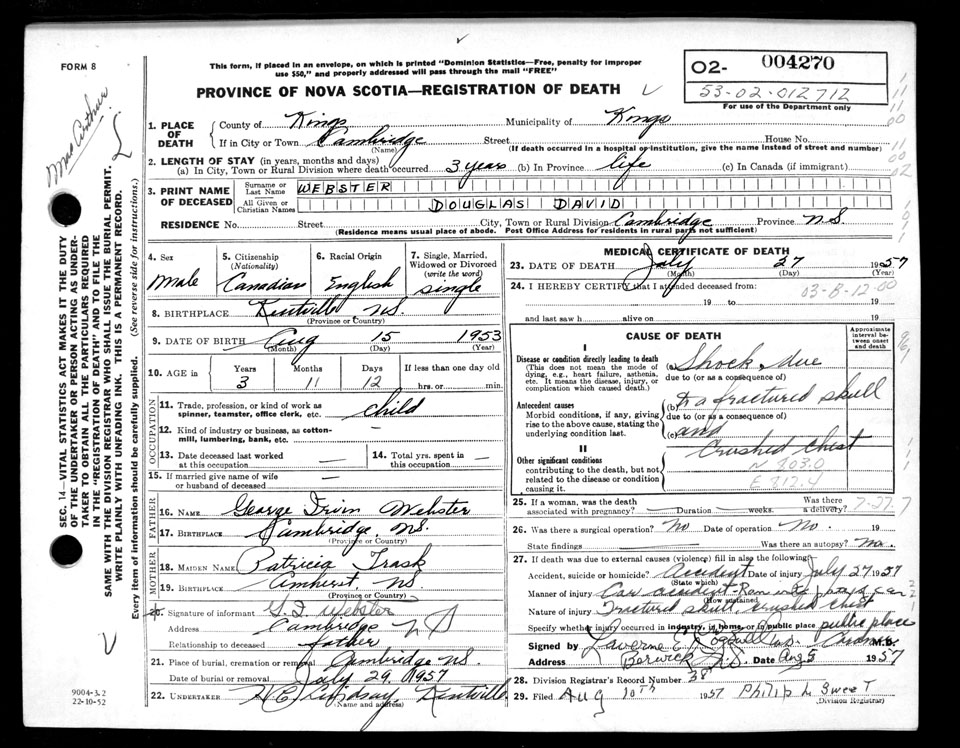 FORM 8
This form, if placed in an envelope, on which is printed "Dominion Statistics—Free, penalty for improper
use $50," and properly addressed will pass through the mail "FREE"
PROVINCE OF NOVA SCOTIA—REGISTRATION OF DEATH
O2- 004270
53-02-012712
For use of the Department only
1. PLACE OF DEATH
County of Kings Municipality of Kings
If in City or Town Cambridge Street House No.
(Name) (If death occurred in a hospital or institution, give the name instead of street and number)
2. LENGTH OF STAY (in years, months and days)
(a) In City, Town or Rural Division where death occurred 3 years (b) In Province life (c) In Canada (if immigrant)
3. PRINT NAME OF DECEASED
Surname or Last Name WEBSTER
All Given or Christian Names DOUGLAS DAVID
RESIDENCE No. Street City, Town or Rural Division Cambridge Province N.S.
(Residence means usual place of abode. Post Office Address for residents in rural parts not sufficient)
4. Sex Male
5. Citizenship (Nationality) Canadian
6. Racial Origin English
7. Single, Married, Widowed or Divorced (write the word) single
8. BIRTHPLACE Kentville N.S.
(Province or Country)
9. DATE OF BIRTH Aug 15 1953
(Month) (Day) (Year)
10. AGE in Years 3 Months 11 Days 12 If less than one day old hrs. or min.
OCCUPATION
11. Trade, profession, or kind of work as spinner, teamster, office clerk, etc. child
12. Kind of industry or business, as cotton-mill, lumbering, bank, etc. —
13. Date deceased last worked at this occupation —
14. Total yrs. spent in this occupation —
15. If married give name of wife or husband of deceased —
FATHER
16. NAME George Irvin Webster
17. BIRTHPLACE Cambridge N.S.
(Province or Country)
MOTHER
18. MAIDEN NAME Patricia Trask
19. BIRTHPLACE Amherst N.S.
(Province or Country)
20. Signature of informant G. I. Webster
Address Cambridge N S
Relationship to deceased father
21. Place of burial, cremation or removal Cambridge N.S.
Date of burial or removal July 29, 1957
22. UNDERTAKER H C Lindsay Kentville
(Name and address)
MEDICAL CERTIFICATE OF DEATH
23. DATE OF DEATH July 27 1957
(Month) (Day) (Year)
24. I HEREBY CERTIFY that I attended deceased from:
03-8-12-00
19 to 19
and last saw h alive on 19
CAUSE OF DEATH
Approximate interval between onset and death
I
Disease or condition directly leading to death
(This does not mean the mode of dying, e.g., heart failure, asthenia, etc. It means the disease, injury, or complication which caused death.)
(a) Shock due
due to (or as a consequence of)
Antecedent causes
Morbid conditions, if any, giving rise to the above cause, stating the underlying condition last.
(b) to a fractured skull
due to (or as a consequence of)
(c) and
crushed chest
II
Other significant conditions
contributing to the death, but not related to the disease or condition causing it.
N 803.0
E 812.4
25. If a woman, was the death associated with pregnancy? Duration weeks. Was there a delivery?
7-27-7
26. Was there a surgical operation? No Date of operation No. 19
State findings Was there an autopsy? No.
27. If death was due to external causes (violence) fill in also the following
Accident, suicide or homicide? Accident Date of injury July 27 1957
(State which)
Manner of injury Car accident
(How sustained)
Nature of injury Fractured skull, crushed chest
Specify whether injury occurred in industry, in home, or in public place public place
Signed by Laverne E M.D.
Address Berwick N.S. Date Aug 5 1957
28. Division Registrar's Record Number 38
29. Filed Aug 10th 1957 Philip L Sweet
(Division Registrar)
SEC. 14—VITAL STATISTICS ACT MAKES IT THE DUTY
OF THE UNDERTAKER OR PERSON ACTING AS UNDER-
TAKER TO OBTAIN ALL THE PARTICULARS REQUIRED
IN THE "REGISTRATION OF DEATH" AND TO FILE THE
SAME WITH THE DIVISION REGISTRAR WHO SHALL ISSUE THE BURIAL PERMIT.
WRITE PLAINLY WITH UNFADING INK. THIS IS A PERMANENT RECORD.
Every item of information should be carefully supplied. (See reverse side for instructions.)
9004-3.2
22-10-52